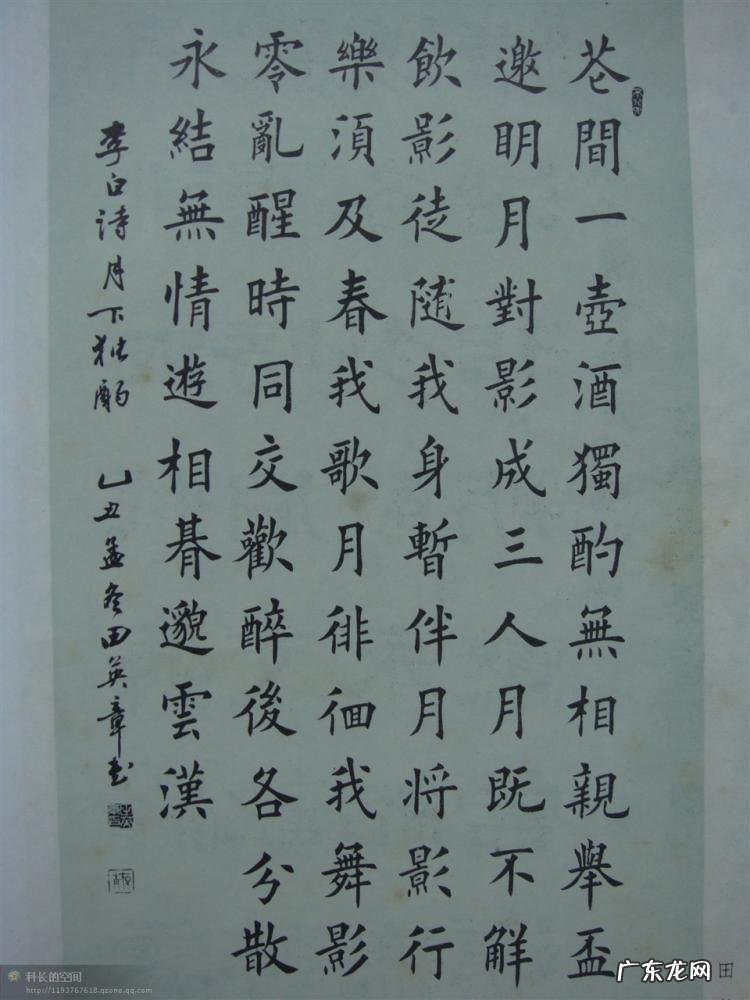 芲間一壺酒獨酌無相親舉盃
邀明月對影成三人月既不解
飲影徒随我身暫伴月将影行
樂須及春我歌月徘徊我舞影
零亂醒時同交歡醉後各分散
永結無情遊相朞邈雲漢
李白诗月下独酌 乙丑孟冬田英章书
田
科长的空间
http://1193767618.qzone.qq.com
广东龙网